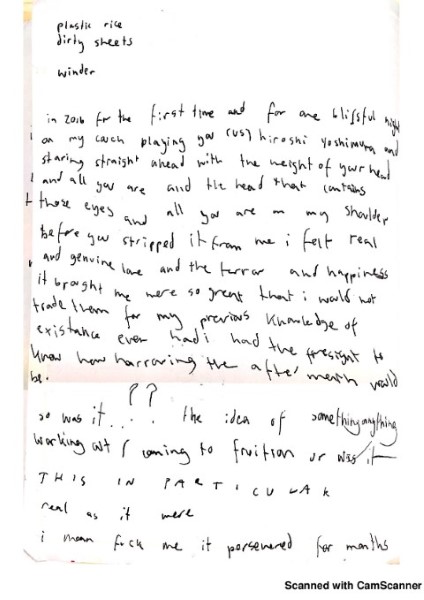 plastic rice
dirty sheets
winder
in 2016 for the first time and for one blissful night
on my couch playing you (us) hiroshi yoshimura and
staring straight ahead with the weight of your head
and all you are and the head that contains
those eyes and all you are on my shoulder
before you stripped it from me i felt real
and genuine love and the terror and happiness
it brought me were so great that i would not
trade them for my previous knowledge of
existance even had i had the foresight to
know how harrowing the aftermath would
be.
??
so was it . . . . the idea of something/anything
working out / coming to fruition or was it
THIS IN PARTICULAR
real as it were
i mean fuck me it persevered for months
Scanned with CamScanner